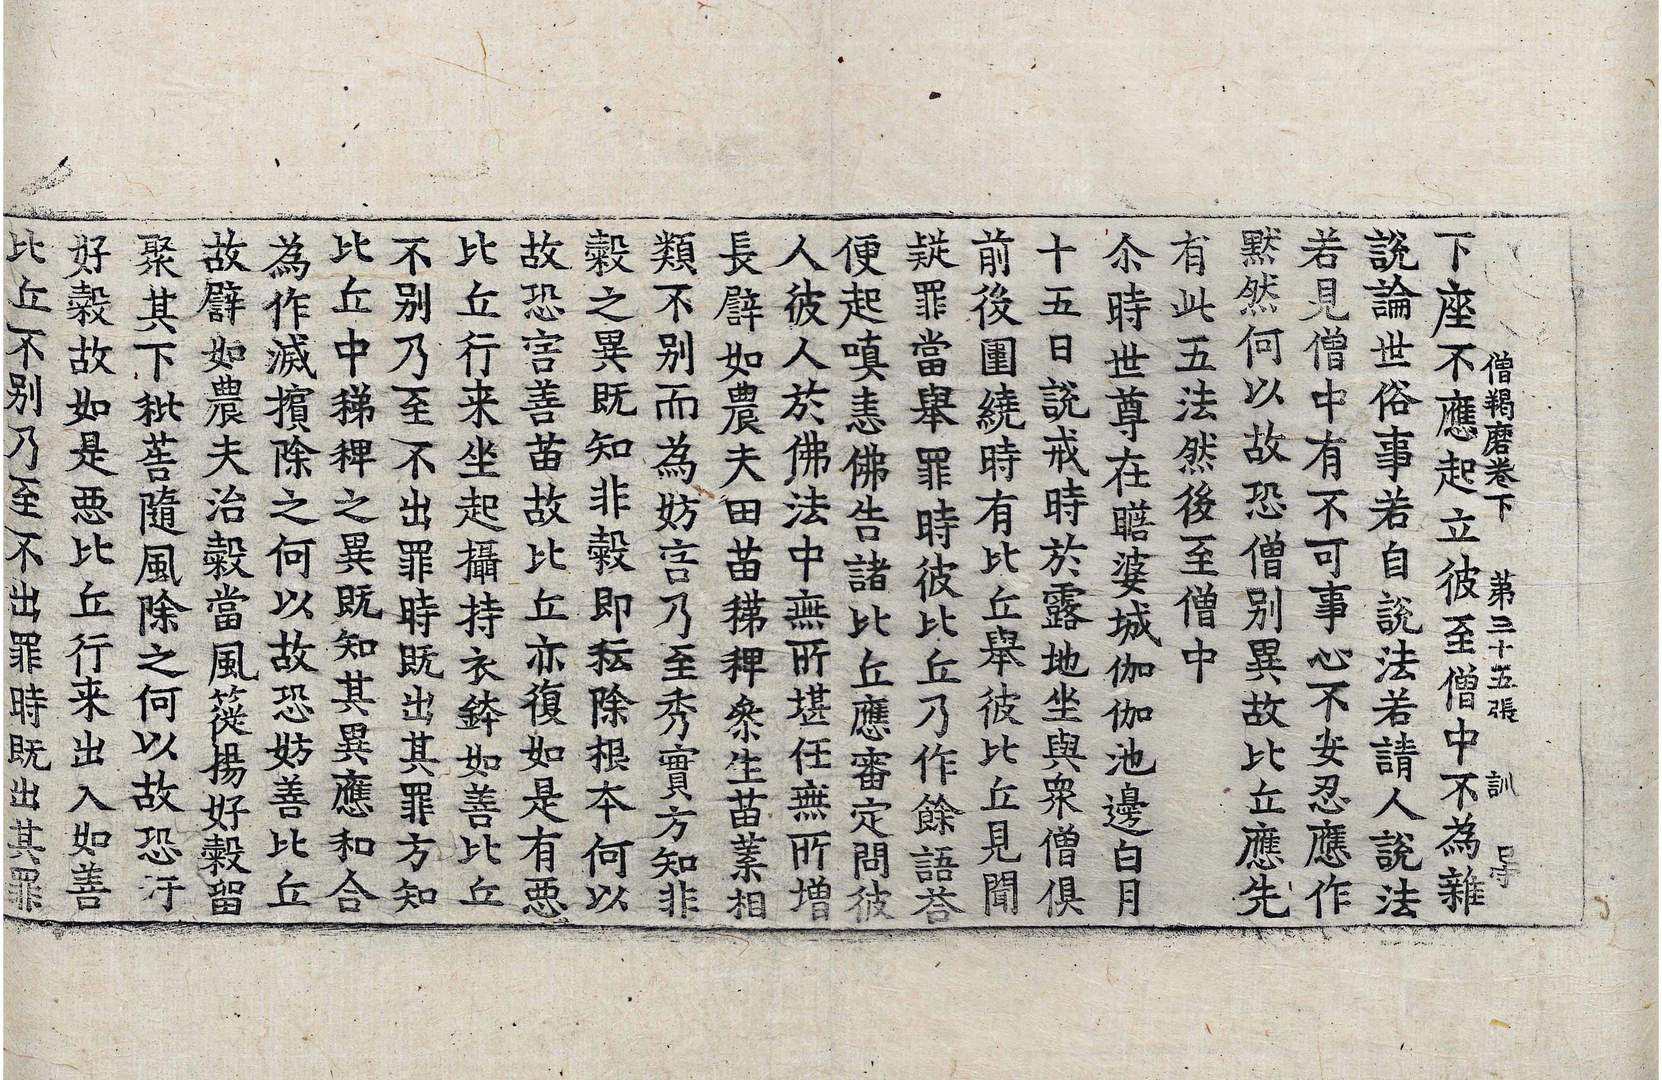 僧羯磨卷下 第三十五張 訓
下座不應起立彼至僧中不為雜
說論世俗事若自說法若請人說法
若見僧中有不可事心不安忍應作
默然何以故恐僧別異故比丘應先
有此五法然後至僧中
尒時世尊在瞻婆城伽伽池邊白月
十五日說戒時於露地坐與衆僧俱
前後圍繞時有比丘舉彼比丘見聞
疑罪當舉罪時彼比丘乃作餘語荅
便起嗔恚佛告諸比丘應審定問彼
人彼人於佛法中無所堪任無所增
長譬如農夫田苗稊稗叅生苗葉相
類不別而為妨害乃至秀實方知非
糓之異既知非糓即耘除根本何以
故恐害善苗故比丘亦復如是有惡
比丘行来坐起攝持衣鉢如善比丘
不別乃至不出罪時既出其罪方知
比丘中稊稗之異既知其異應和合
為作滅擯除之何以故恐妨善比丘
故譬如農夫治糓當風簁揚好糓留
聚其下秕䓁隨風除之何以故恐汙
好糓故如是惡比丘行来出入如善
比丘不別乃至不出罪時既出其罪